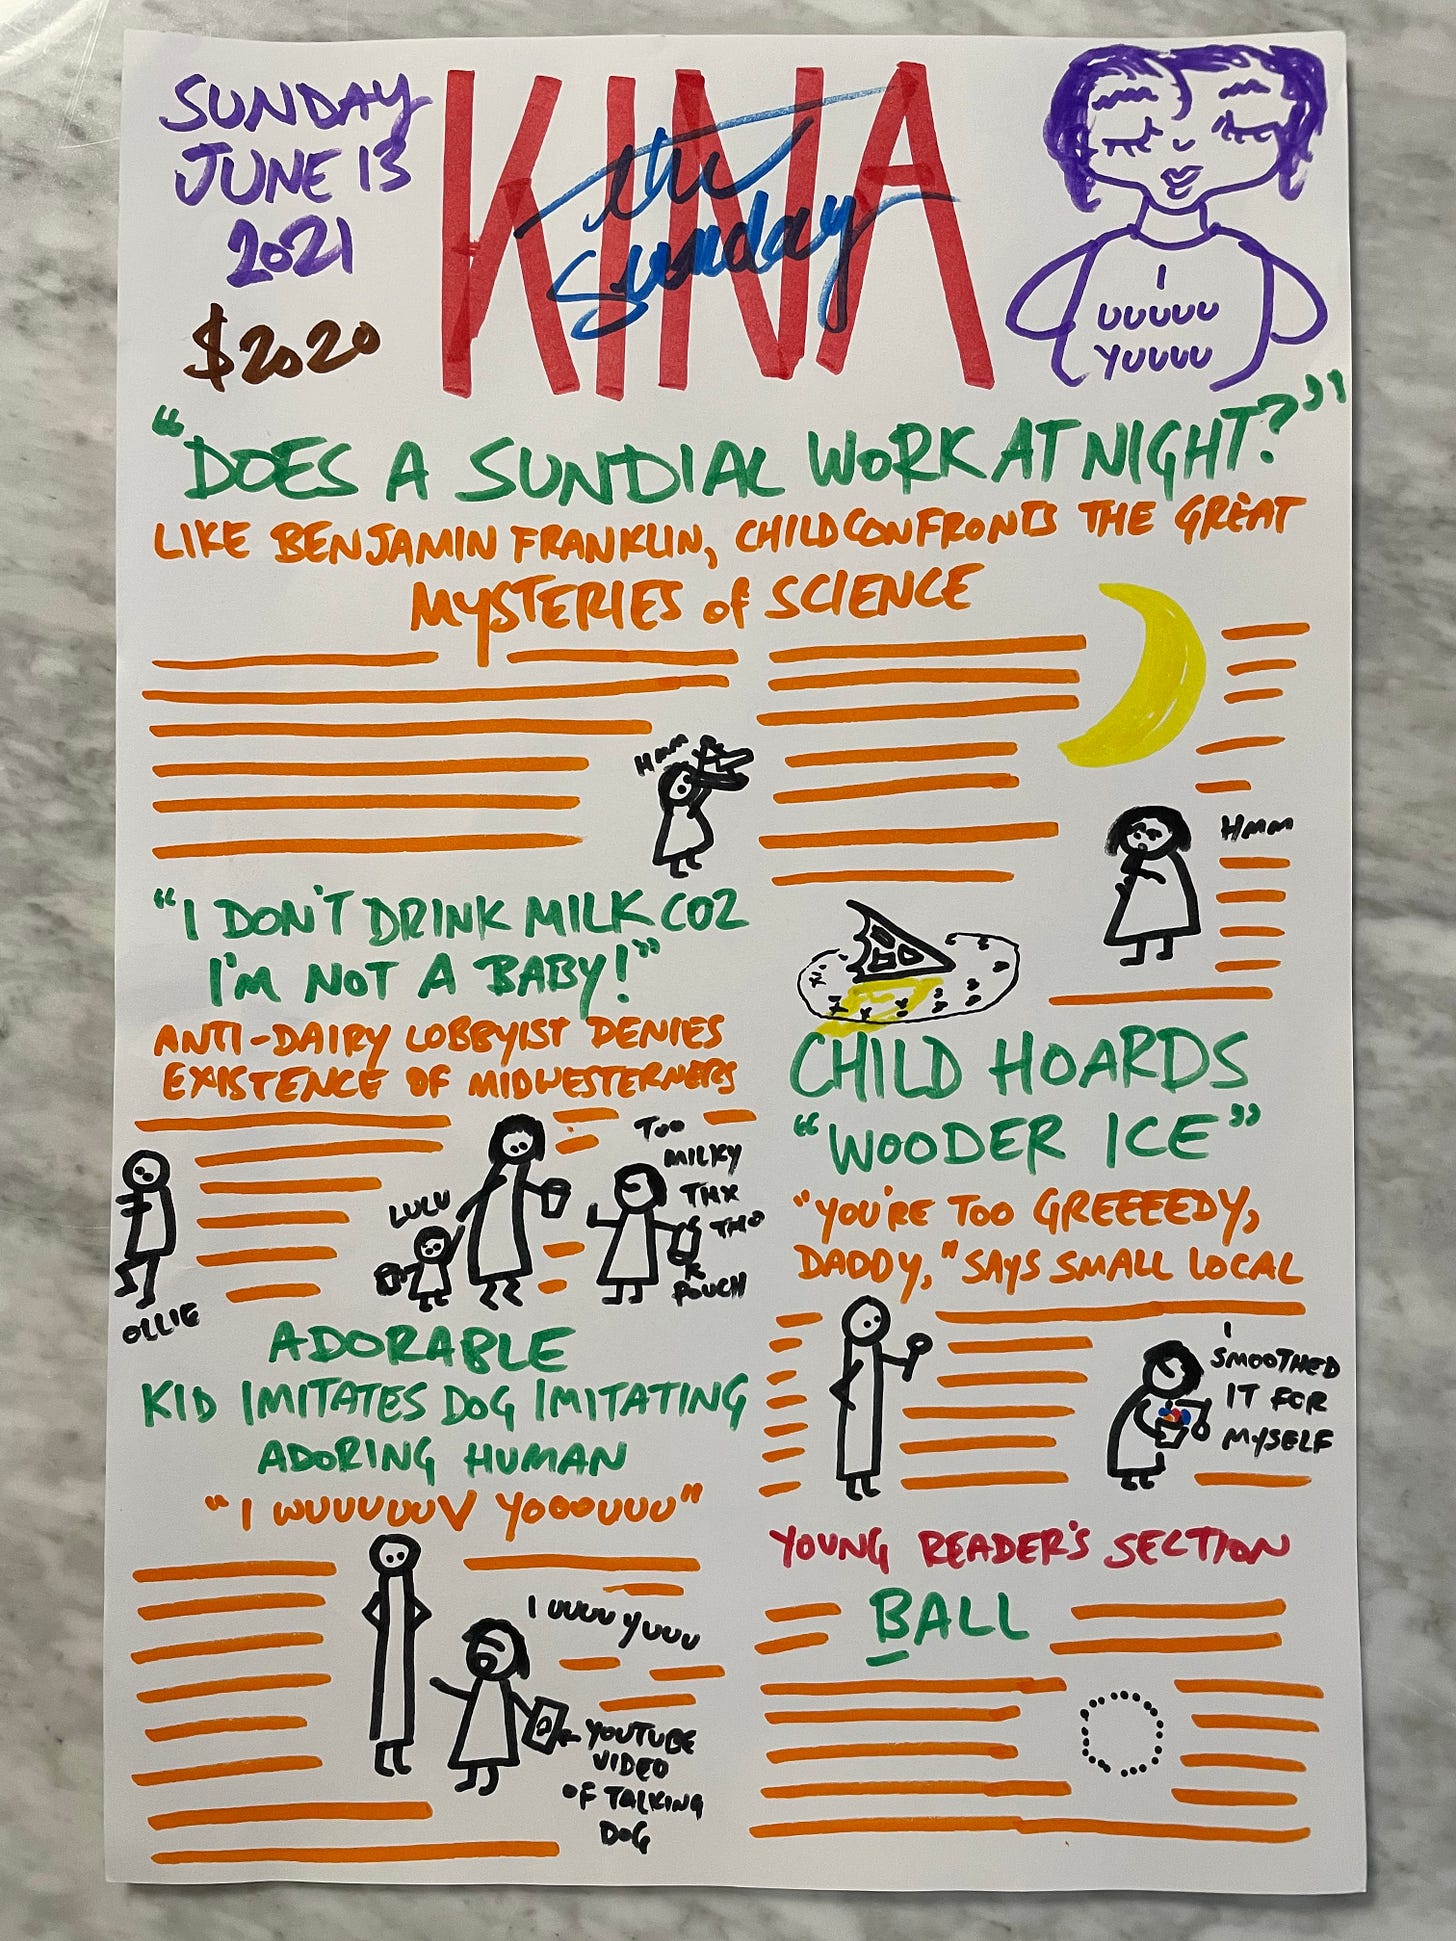 SUNDAY
JUNE 13
2021
$2020
KINA
the
Sunday
I
UUUUU
YUUUU
"DOES A SUNDIAL WORK AT NIGHT?"
LIKE BENJAMIN FRANKLIN, CHILD CONFRONTS THE GREAT
MYSTERIES of SCIENCE
Hmm
Hmm
"I DON'T DRINK MILK COZ
I'M NOT A BABY!"
ANTI-DAIRY LOBBYIST DENIES
EXISTENCE OF MIDWESTERNERS
OLLIE
LULU
TOO
MILKY
THX
THO
POUCH
CHILD HOARDS
"WOODER ICE"
"YOU'RE TOO GREEEEDY,
DADDY," SAYS SMALL LOCAL
I
SMOOTHED
IT FOR
MYSELF
ADORABLE
KID IMITATES DOG IMITATING
ADORING HUMAN
"I WUUUUUV YOOOUUU"
I UUUU YUUU
YOUTUBE
VIDEO
OF TALKING
DOG
YOUNG READER'S SECTION
BALL